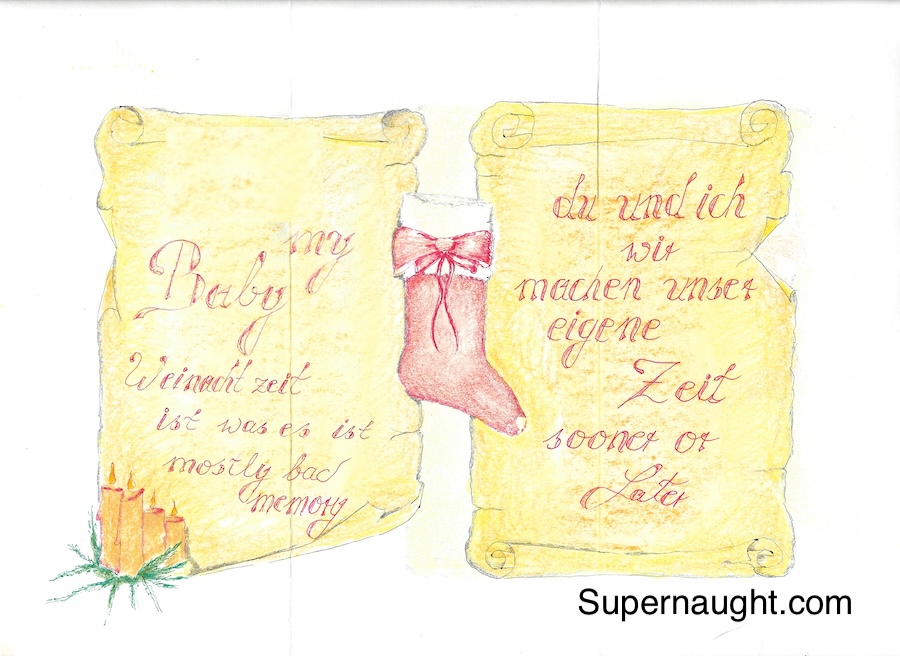 my
Baby
Weinacht zeit
ist was es ist
mostly bad
memory
du und ich
wir
machen unser
eigene
Zeit
sooner or
Later
Supernaught.com